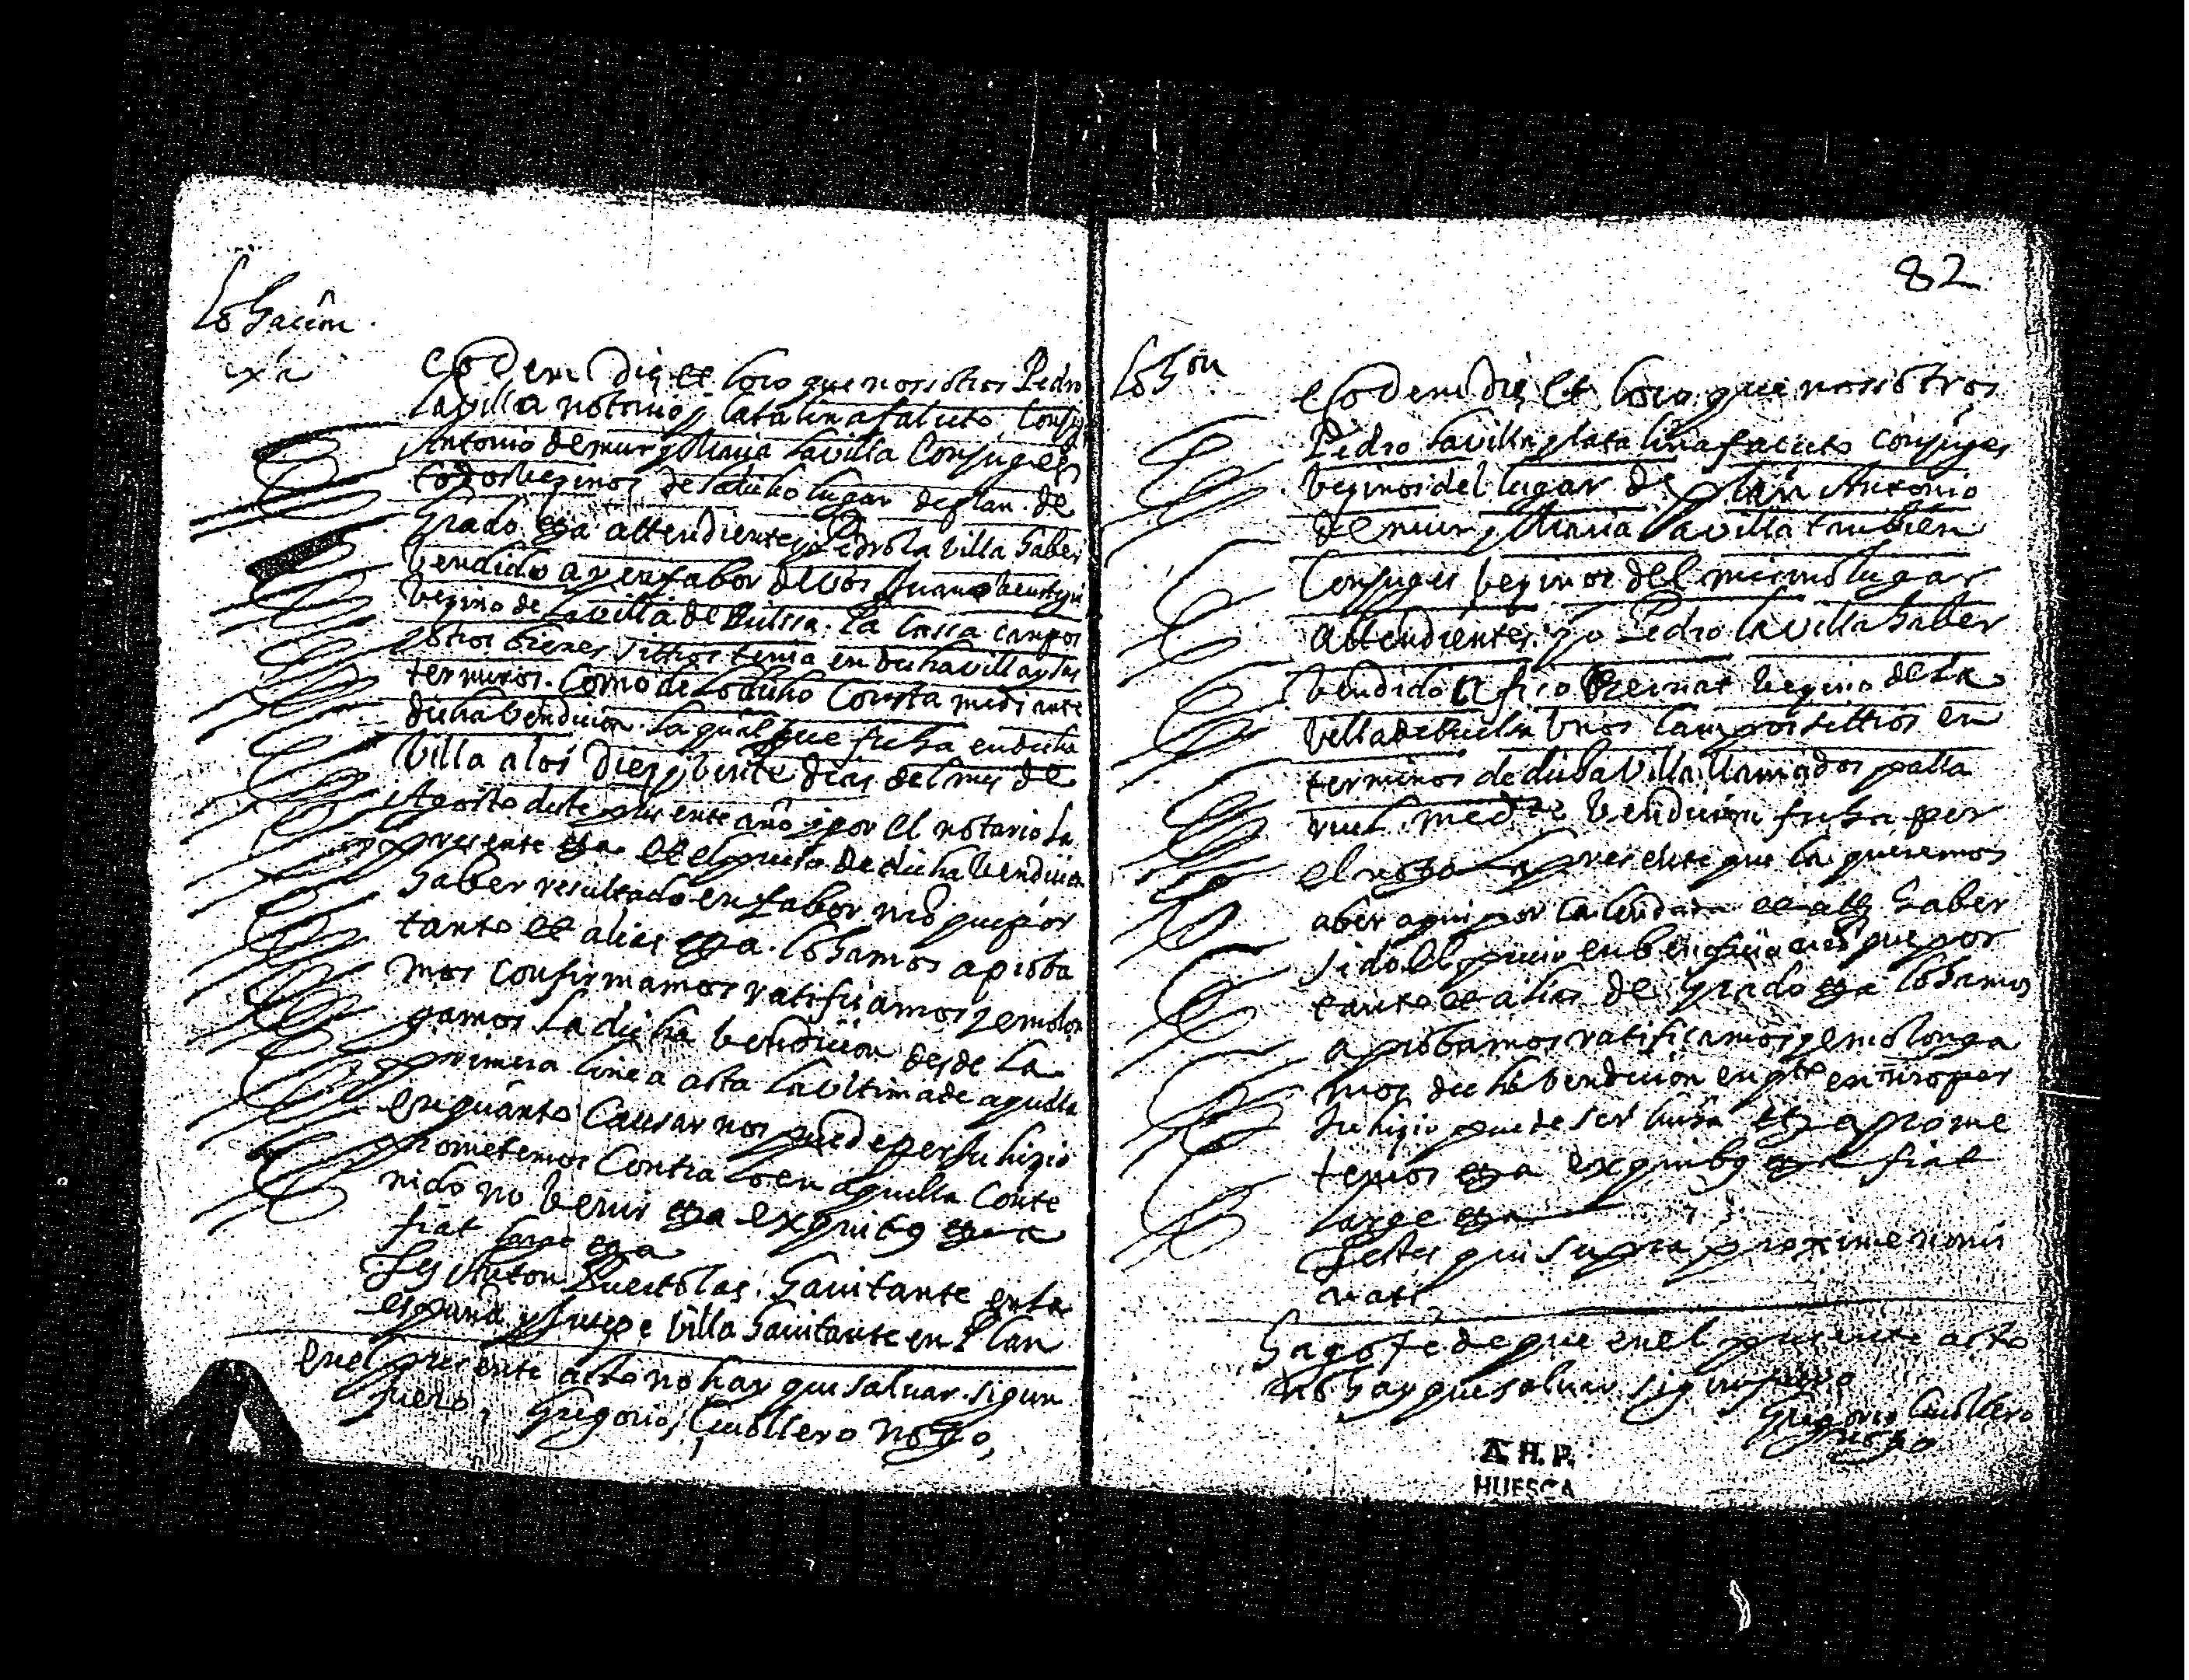 Lohacion
exa
Eodem die et loco que nosotros Pedro
Lavilla notorio y Catalina falceto Conju
Antonio de mur y Maria Lavilla Conjuges
todos beginos de lo dicho lugar de plan. de
Grado eta attendientes yo Pedro la Villa haber
bendido a y en fabor de vos
begino de La villa de Bielssa. la cassa campos
y otros bienes sittios tenia en dicha villa y sus
terminos. Como de lo dicho Consta mediante
dicha bendicion. La qual fue fecha en dicha
Villa a los diez y beinte dias del mes de
Agosto deste presente año y por el notario la
presente et el precio de dicha bendicion
haber resultado en fabor nro que por
tanto et alias eta. lohamos aproba
mos Confirmamos ratificamos y emolon
gamos La dicha bendicion desde La
primera linea asta la vltima de aquella
en quanto Causar nos puede perjuhizio
prometemos Contra lo en aquella Conte
nido no benir eta ex quibus eta
fiat large eta
Tes Anton Buertolas. havitante en la
espuña y Jusepe Villa havitante en Plan
en el presente acto no hay que saluar. sigun
fuero, Gregorio Cuollero noto,
82
Lohon
Eodem die et loco que nosotros
Pedro Lavilla y Catalina falceto conjuges
beginos del lugar de plan Antonio
de mur y Maria Lavilla tambien
Conjuges beginos del mismo lugar
Attendientes yo Pedro la Villa haber
bendido a fico Bernat begino de La
Villa de Bielsa vnos Campos sittios en
terminos de dicha Villa llamados palla
ruel. medte bendicion fecha per
el noto la presente que la queremos
aber aqui por Calendada et att haber
sido el precio en beneficio nro que por
tanto et alias de Grado eta lohamos
aprobamos ratificamos y emolonga
mos dicha bendicion en pte en nro per
juhizio puede ser hecha eta prome
temos eta ex quibus eta fiat
large eta
Testes qui supra proxime nomi
nati
hago fe de que en el presente acto
no hay que saluar sigun fuero
Gregorio Cuollero
noto
A. H. P.
HUESCA